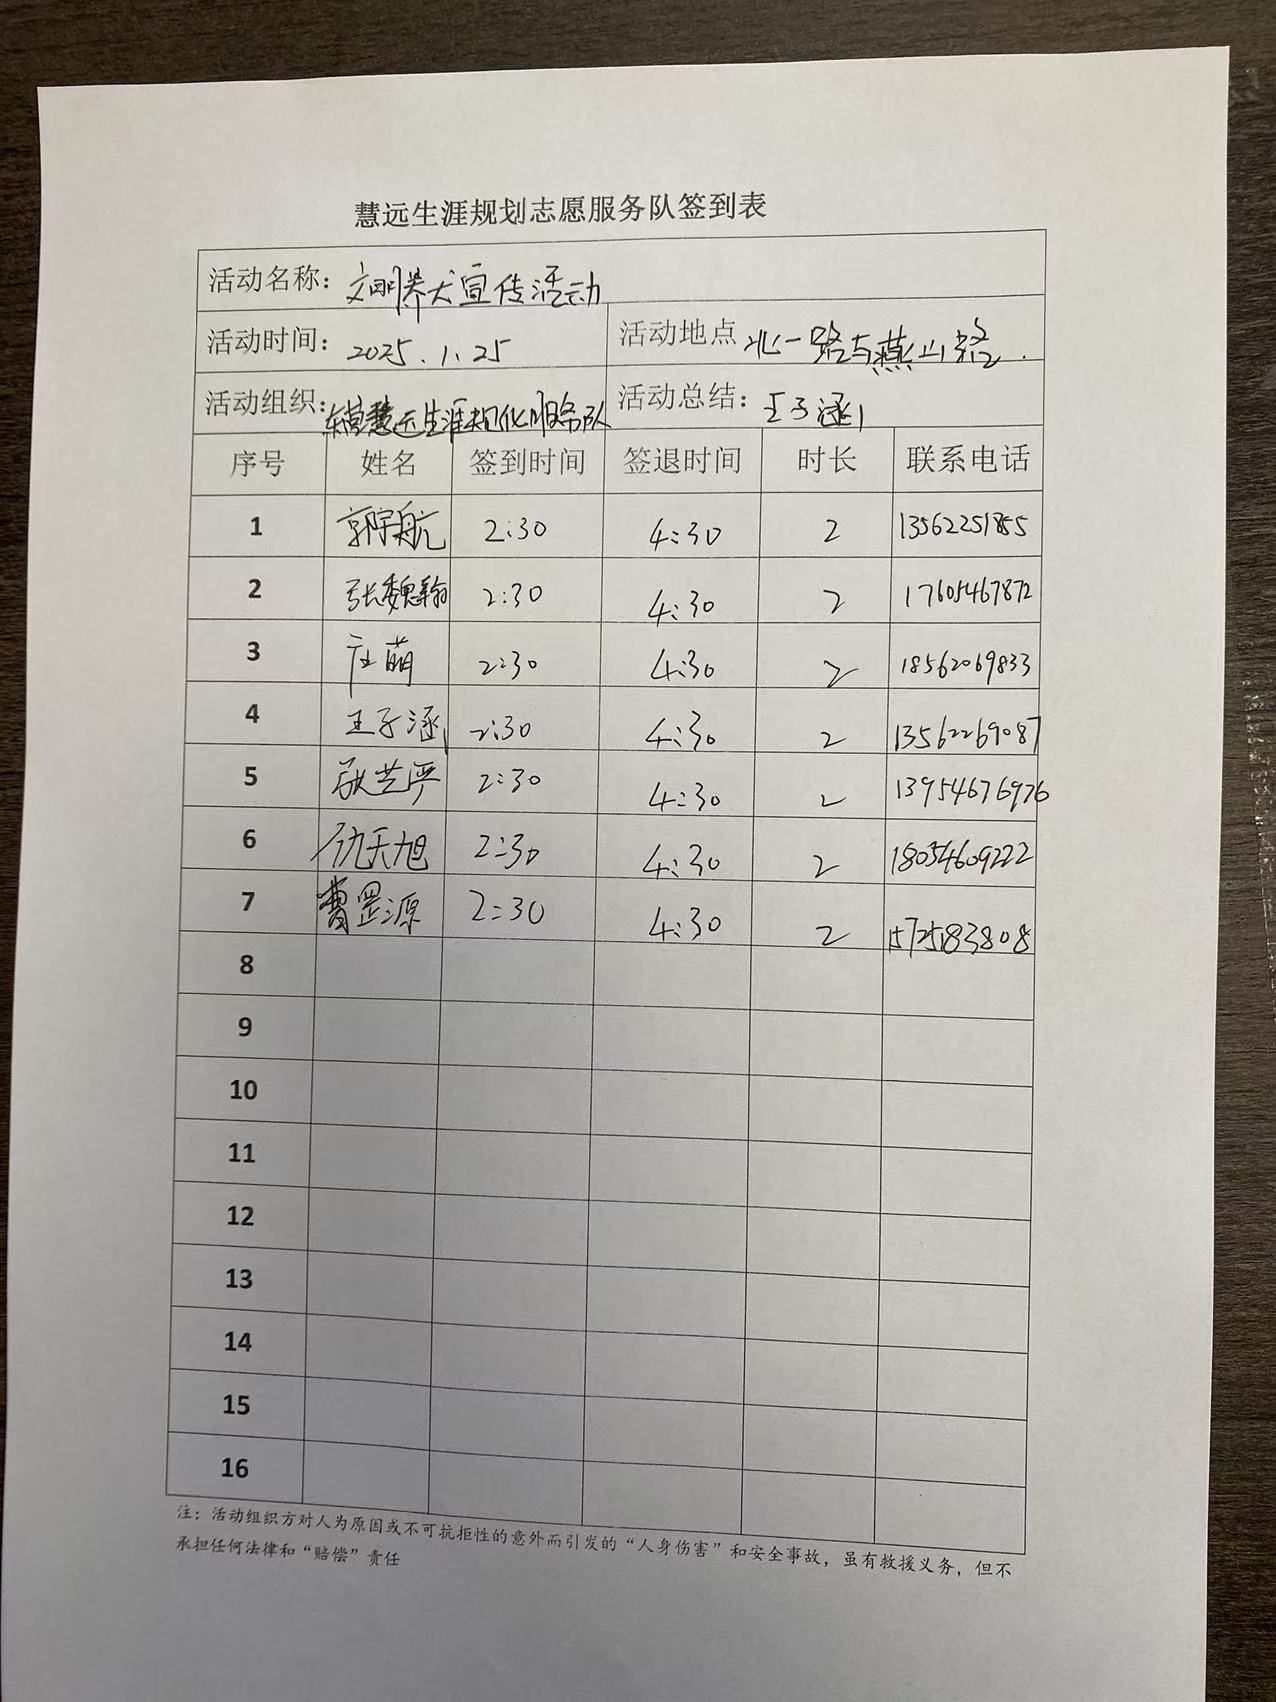 慧远生涯规划志愿服务队签到表
活动名称：文明养犬宣传活动
活动时间：2025.1.25 活动地点 北一路与燕山路.
活动组织：东营慧远生涯规化服务队 活动总结：王子涵
序号 姓名 签到时间 签退时间 时长 联系电话
1 郭宇航 2:30 4:30 2 13562251855
2 张魏翰 2:30 4:30 2 17605467872
3 庄萌 2:30 4:30 2 18562069833
4 王子涵 2:30 4:30 2 13562269087
5 张艺严 2:30 4:30 2 13954676976
6 仇天旭 2:30 4:30 2 18054609222
7 曹罡源 2:30 4:30 2
8
9
10
11
12
13
14
15
16
注：活动组织方对人为原因或不可抗拒性的意外而引发的“人身伤害”和安全事故，虽有救援义务，但不
承担任何法律和“赔偿”责任